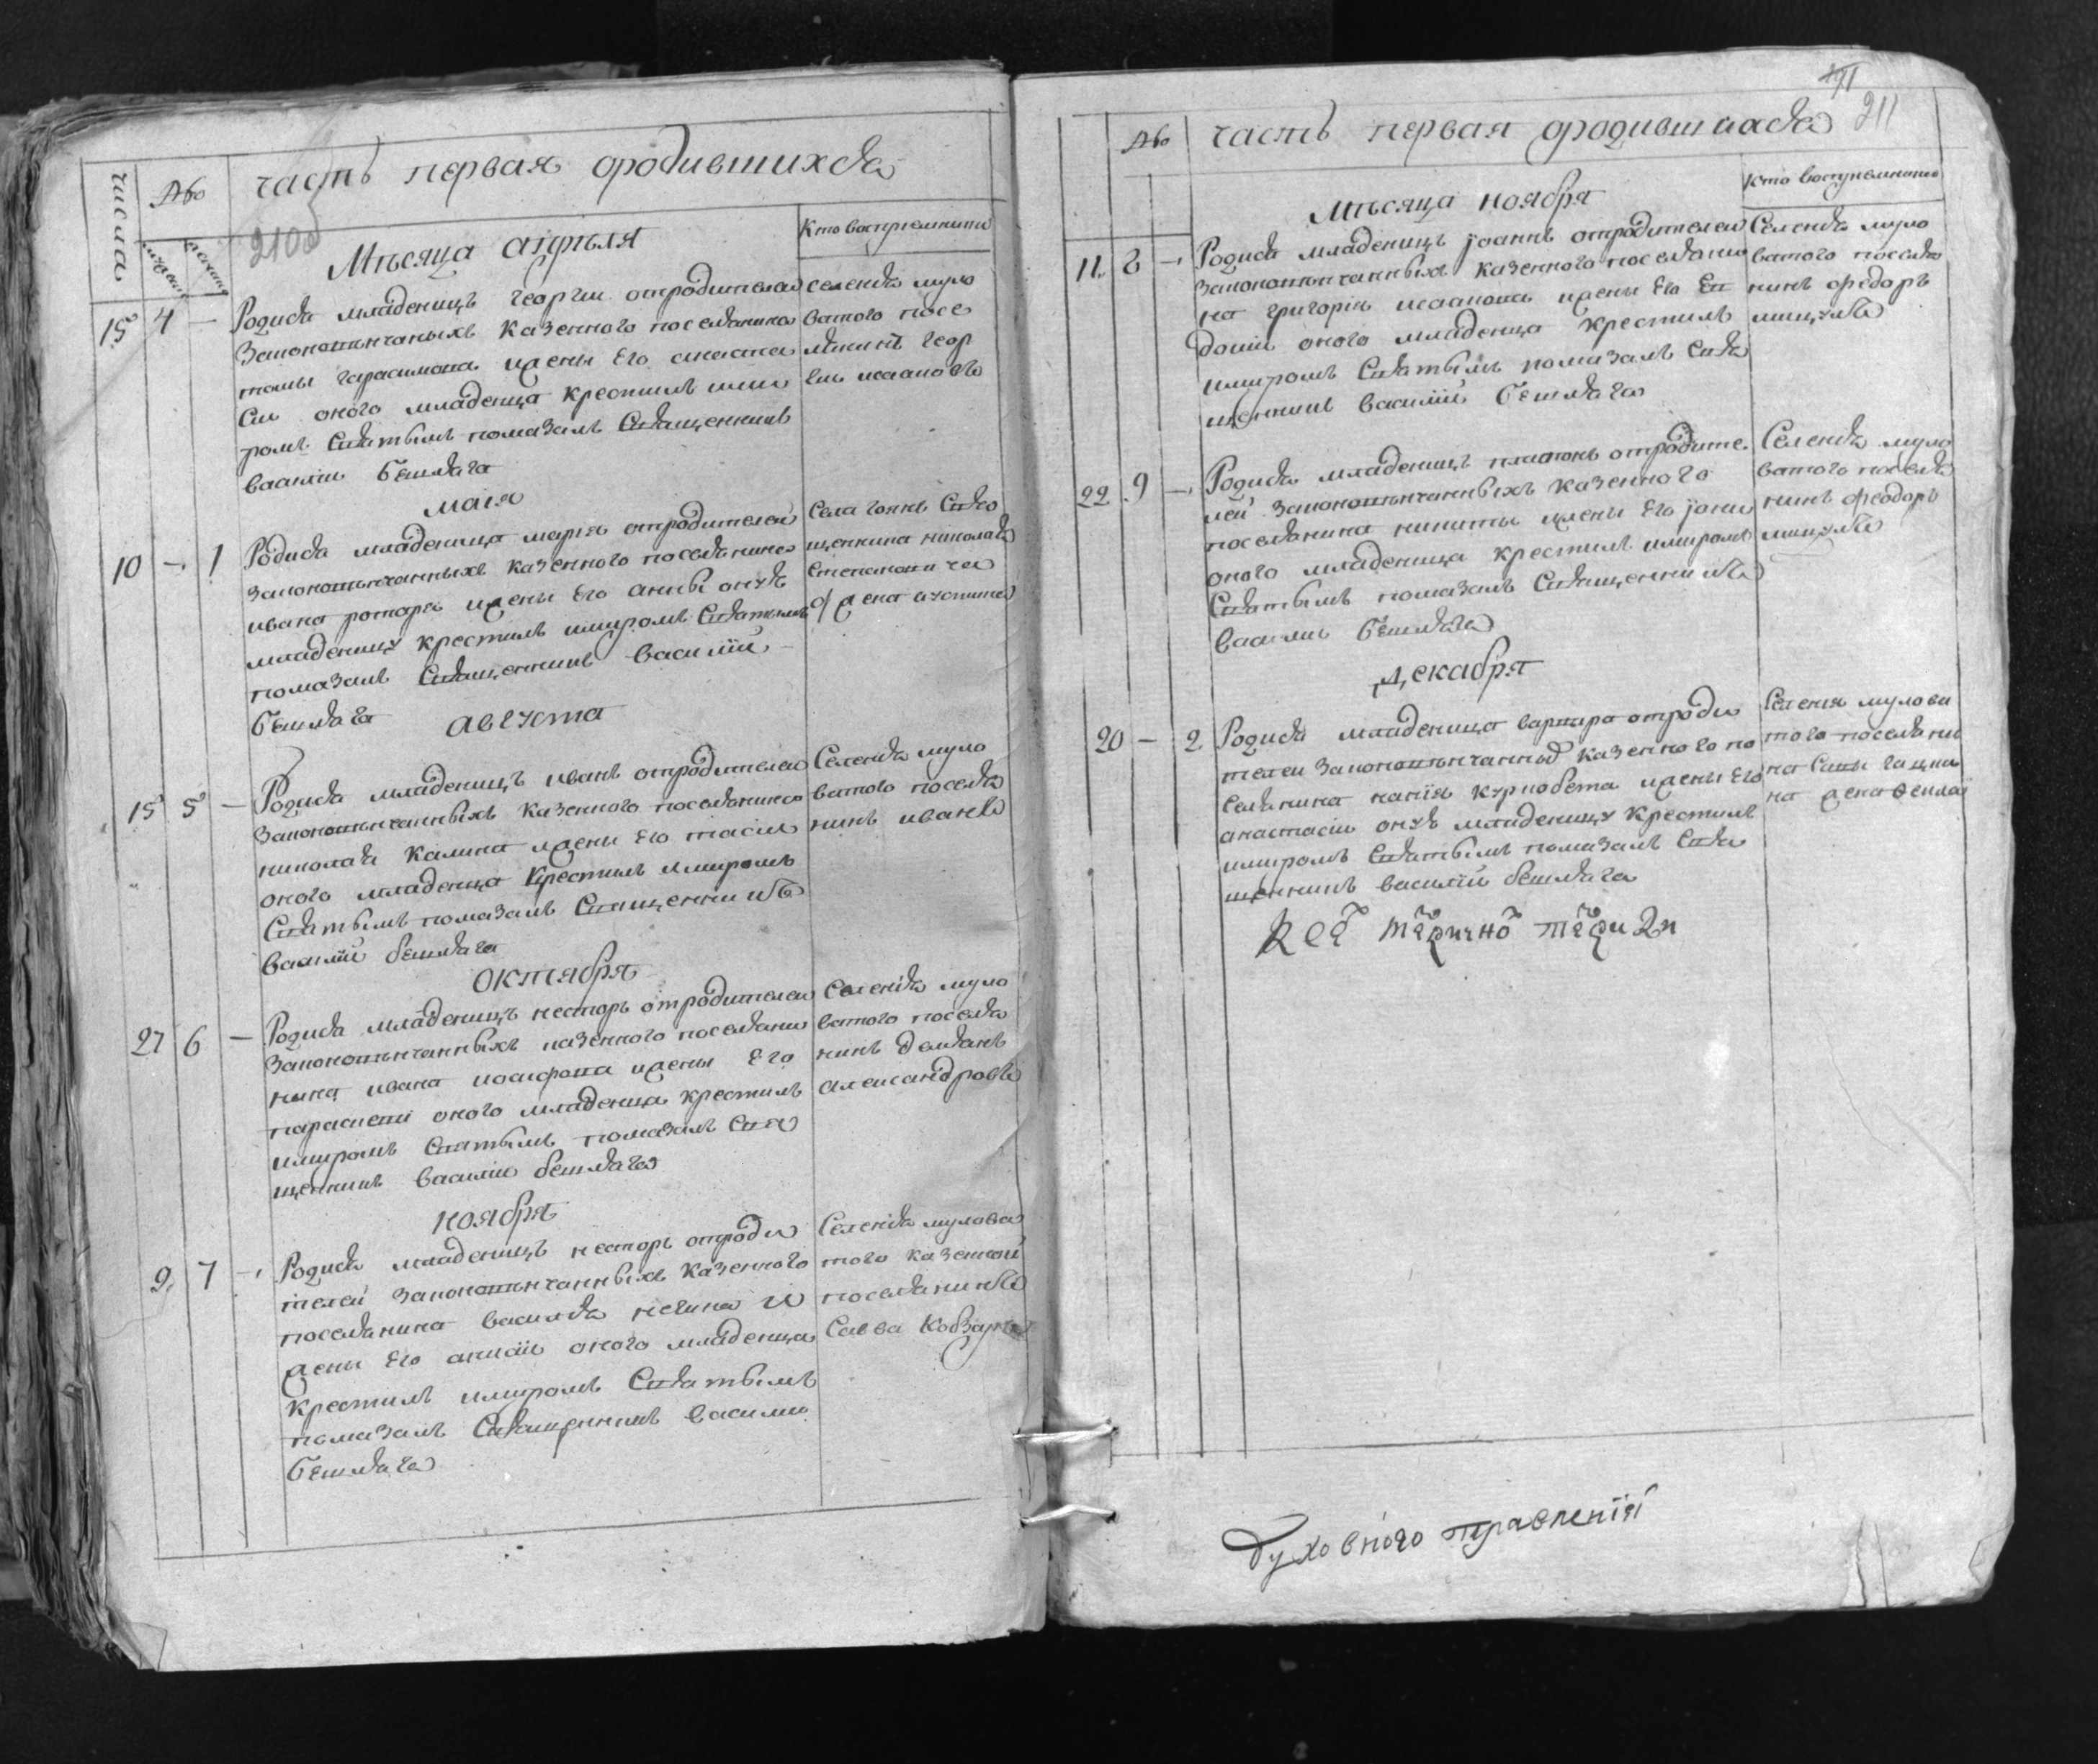 часть первая ородившихся
числа
210
Мѣсяца априля
Кто восприемники
15 4 — Родися младеницъ георгии отродителеи
законовѣнчаныхъ казенного поселянина
томы гарасимова жены его анаста
сии оного младенца крестилъ имѵ
ромъ святымъ помазалъ священникъ
василіи бешляга
селения муло
ватого посе
лянинъ геор
маия
10 — 1 Родися младеница мария отродителеи
законовѣнчанныхъ казенного поселянина
ивана ротаря жены его анны онуѣ
младеницу крестилъ имиромъ святымъ
помазалъ священникъ василіи
бешляга
Села гоянъ свя
щенника николая
жена
августа
15 5 — Родися младеницъ иванъ отродителеи
законовѣнчанныхъ казенного поселянина
николая калина жены его тасии
оного младенца крестилъ имиромъ
Святымъ помазалъ Священникъ
василіи бешляга
Селения муло
ватого поселя
нинъ иванъ
октября
27 6 — Родися младеницъ несторъ отродителеи
законовѣнчанныхъ казенного поселяни
нина ивана иосифова жены его
параскеви оного младенца крестилъ
имиромъ Святымъ помазалъ Свя
щенникъ василіи бешляга
Селения муло
ватого поселя
нинъ демянъ
александровъ
ноября
9 7 — Родися младеницъ несторъ отроди
телеи законовѣнчанныхъ казенного
поселянина василя негина и
жены его анисіи оного младенца
крестилъ имиромъ Святымъ
помазалъ Священникъ василіи
бешляга
Селения мулова
того казенныи
поселянинъ
Савва Кобзаръ
часть первая ородившиася
211
Кто восприемники
Мѣсяца ноября
11 8 — Родися младеницъ іоаннъ отродителеи
законовѣнчанныхъ казенного поселяни
на григорія исакова жены его ев
докии оного младенца крестилъ
имиромъ Святымъ помазалъ Свя
щенникъ василіи бешляга
Селения муло
ватого поселя
нинъ федоръ
22 9 — Родися младеницъ платонъ отродите
леи законовѣнчанныхъ казенного
поселянина никиты жены его
оного младенца крестилъ имиромъ
Святымъ помазалъ Священникъ
василіи бешляга
Селения муло
ватого поселя
нинъ феодоръ
декабря
20 — 2 Родися младеница варвара отроди
телеи законовѣнчанныхъ казенного по
селянина жены его
анастасіи онуѣ младеницу крестилъ
имиромъ Святымъ помазалъ Свя
щенникъ василіи бешляга
Селения мулова
того поселяни
на
на жена
духовного правленія